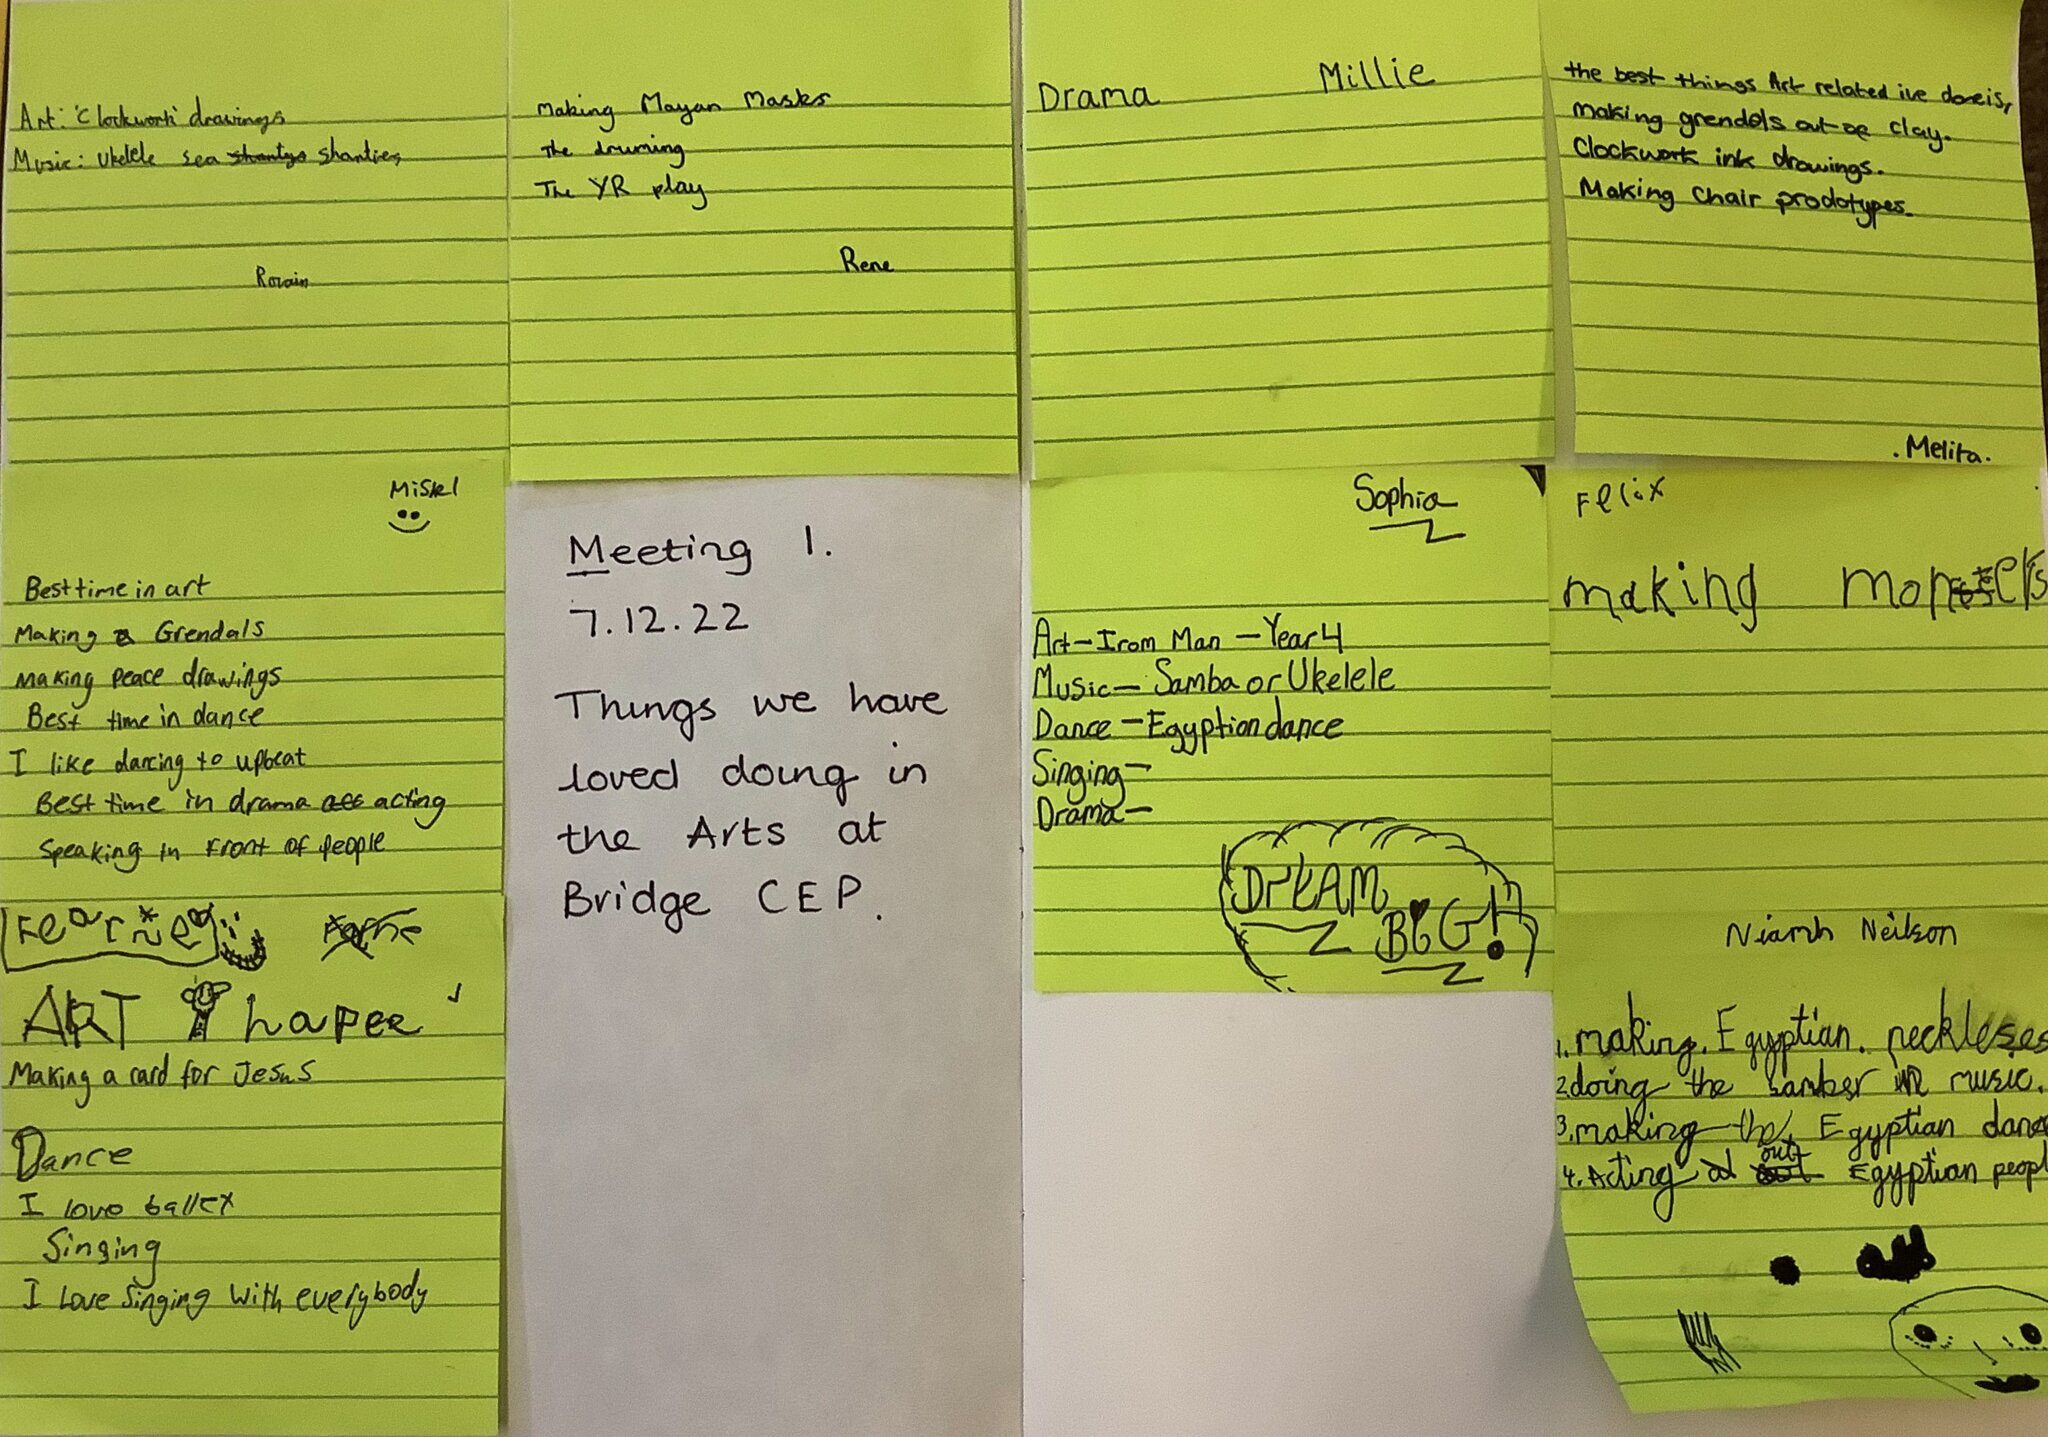 Art: 'Clockwork' drawings
Music: Ukelele sea shantys shanties
Making Mayan Masks
The druming
The YR play
Rene
Drama Millie
the best things Art related ive done is,
making grendels out of clay.
Clockwork ink drawings.
Making Chair prodotypes.
.Melita.
Miskel
Best time in art
Making a Grendals
Making peace drawings
Best time in dance
I like dancing to upbeat
Best time in drama acting
Speaking in front of people
ART
Making a card for Jesus
Dance
I love ballet
Singing
I love singing with everybody
Meeting 1.
7.12.22
Things we have
loved doing in
the Arts at
Bridge CEP.
Sophia
Art - Iron Man - Year 4
Music - Samba or Ukelele
Dance - Egyption dance
Singing -
Drama -
DREAM
BIG!
Felix
making monsters
Niamh Neilson
1. making. Egyptian. neckleses
2. doing the samber in music.
3. making the Egyptian dance
4. Acting out Egyptian peopl